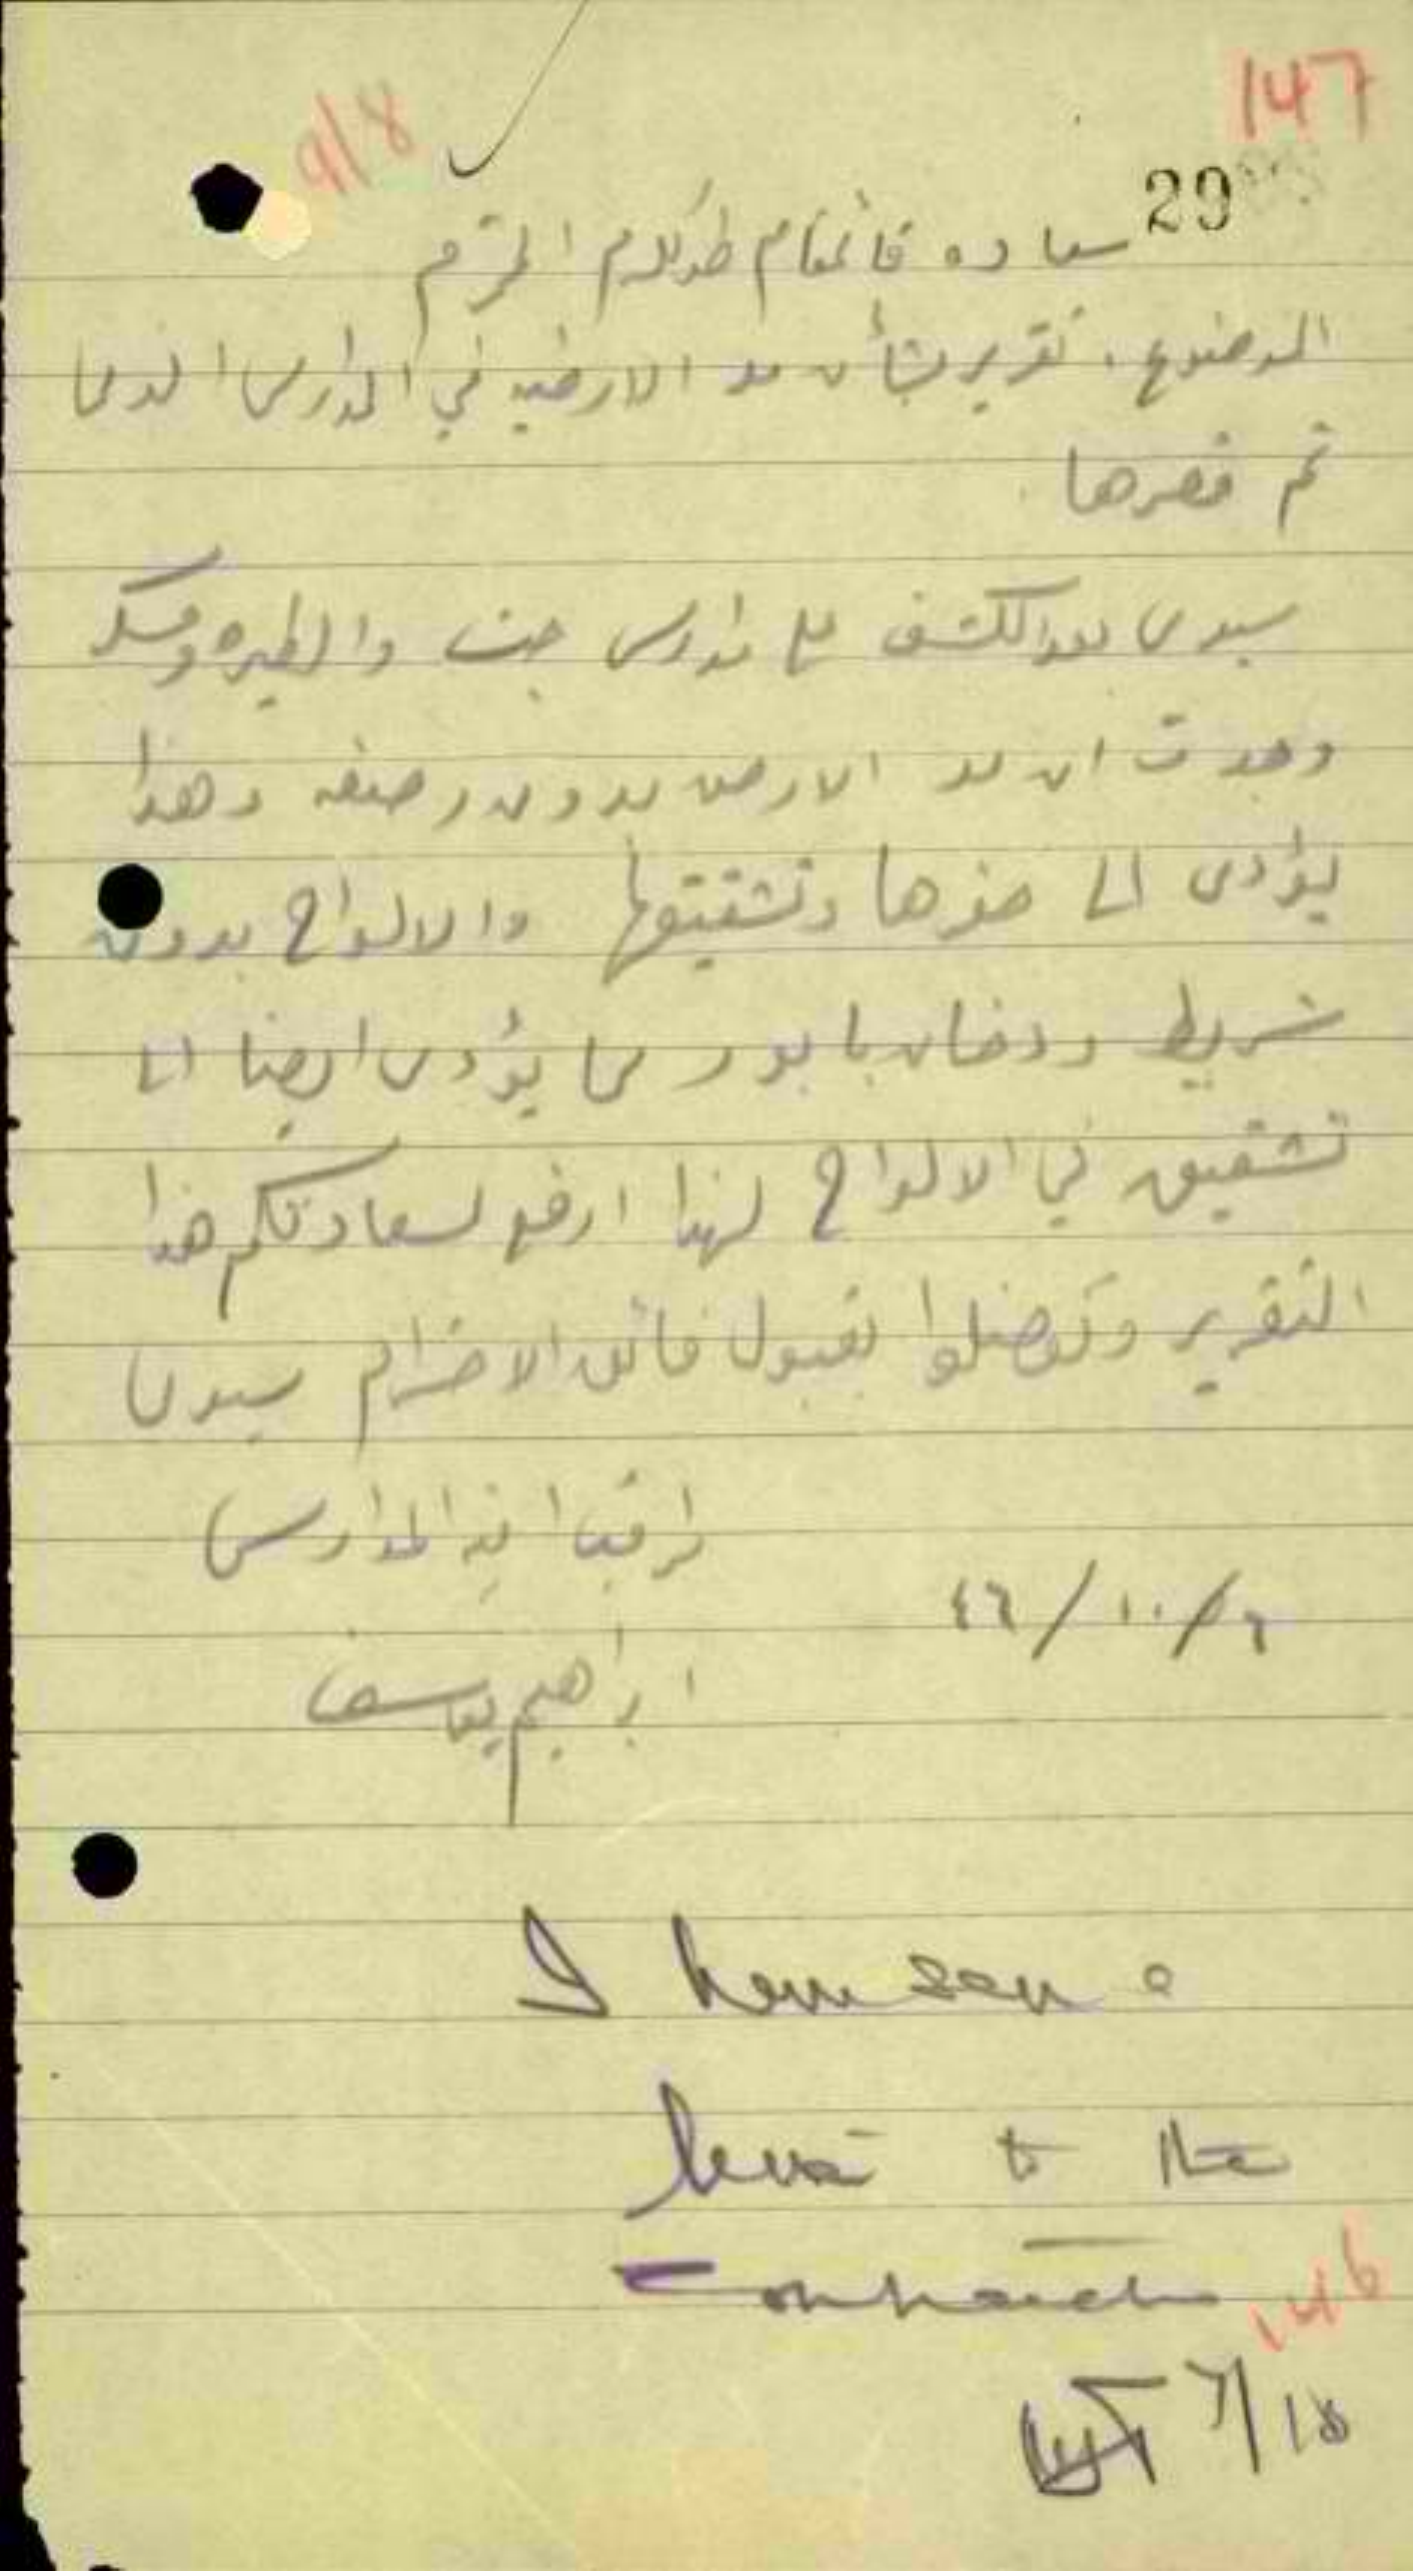 147
9/8
29
سعادة قائمقام طولكرم المحترم
الموضوع. تقرير بشأن مد الارضيه في المدارس الذى
تم قصرها
سيدى بعد الكشف على مدارس جيت والطيره ومسكه
وجدت ان مد الارض بدون رصفه وهذا
يؤدى الى حفرها وتشقيقها والالواح بدون
شريط ودخان بابور مما يؤدى ايضا الى
تشقيق في الالواح لهذا ارفع لسعادتكم هذا
التقرير وتفضلوا بقبول فائق الاحترام سيدى
مراقب ابنية المدارس
٦/١٠/٤٦
ابراهيم يوسف
I have sent a
letter to the
contractor
146
7/10